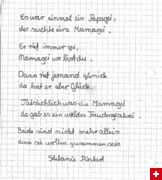 Es war einmal ein Papagei,
der suchte eine Mamagei.
Er rief immer
Mamagei wo bist du.
Dann rief jemand
da hat er aber Glück.
Tatsächlich war die Mamagei
da gab es ein wildes
Beide sind nicht mehr allein
und sie wollen zusammen sein
Stefanie